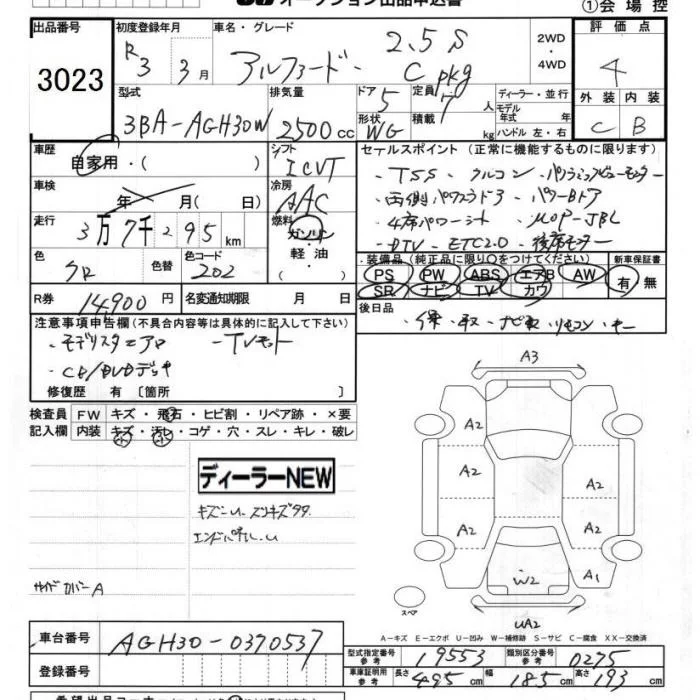 オークション出品申込書
①会場控
出品番号
3023
初度登録年月
R3 3月
車名・グレード
アルファード 2.5S
C pkg
2WD
・
4WD
評価点
4
外装 内装
C B
型式
3BA-AGH30W
排気量
2500cc
ドア 5
形状 WG
定員 7人
積載 kg
ディーラー・並行
モデル年式 年
ハンドル 左・右
車歴
自家用・( )
シフト
ICVT
車検
年 月( 日)
冷房
AAC
走行
3万7千295km
燃料
ガソリン
軽油
・
色
クロ
色替
色コード
202
R券
14,900円
名変通知期限 月 日
セールスポイント (正常に機能するものに限ります)
・TSS ・クルコン ・パノラミックビューモニター
・両側パワースライドドア ・パワーBドア
・4席パワーシート ・MOP-JBL
・DTV ・ETC2.0 ・後席モニター
装備品 (純正品に限り○をつけてください)
PS PW ABS エアB AW
SR ナビ TV カワ
新車保証書
有・無
後日品
・保・取・ナビ取・リモコン・キー
注意事項申告欄(不具合内容等は具体的に記入して下さい)
・モデリスタエアロ ・TVキット
・CD/DVDデッキ
修復歴 有 〔箇所 〕
検査員
記入欄
FW キズ・飛石・ヒビ割・リペア跡・×要
内装 キズ・汚レ・コゲ・穴・スレ・キレ・破レ
ディーラーNEW
サイドカバーA
A3
A2 A2
A2 A2
A2
W2 A1
UA2
スペア
A-キズ E-エクボ U-凹み W-補修跡 S-サビ C-腐食 XX-交換済
車台番号
AGH30-0370537
登録番号
型式指定番号
参考
19553
類別区分番号
参考
0275
車庫証明用
参考
長さ 495cm 幅 185cm 高さ 193cm